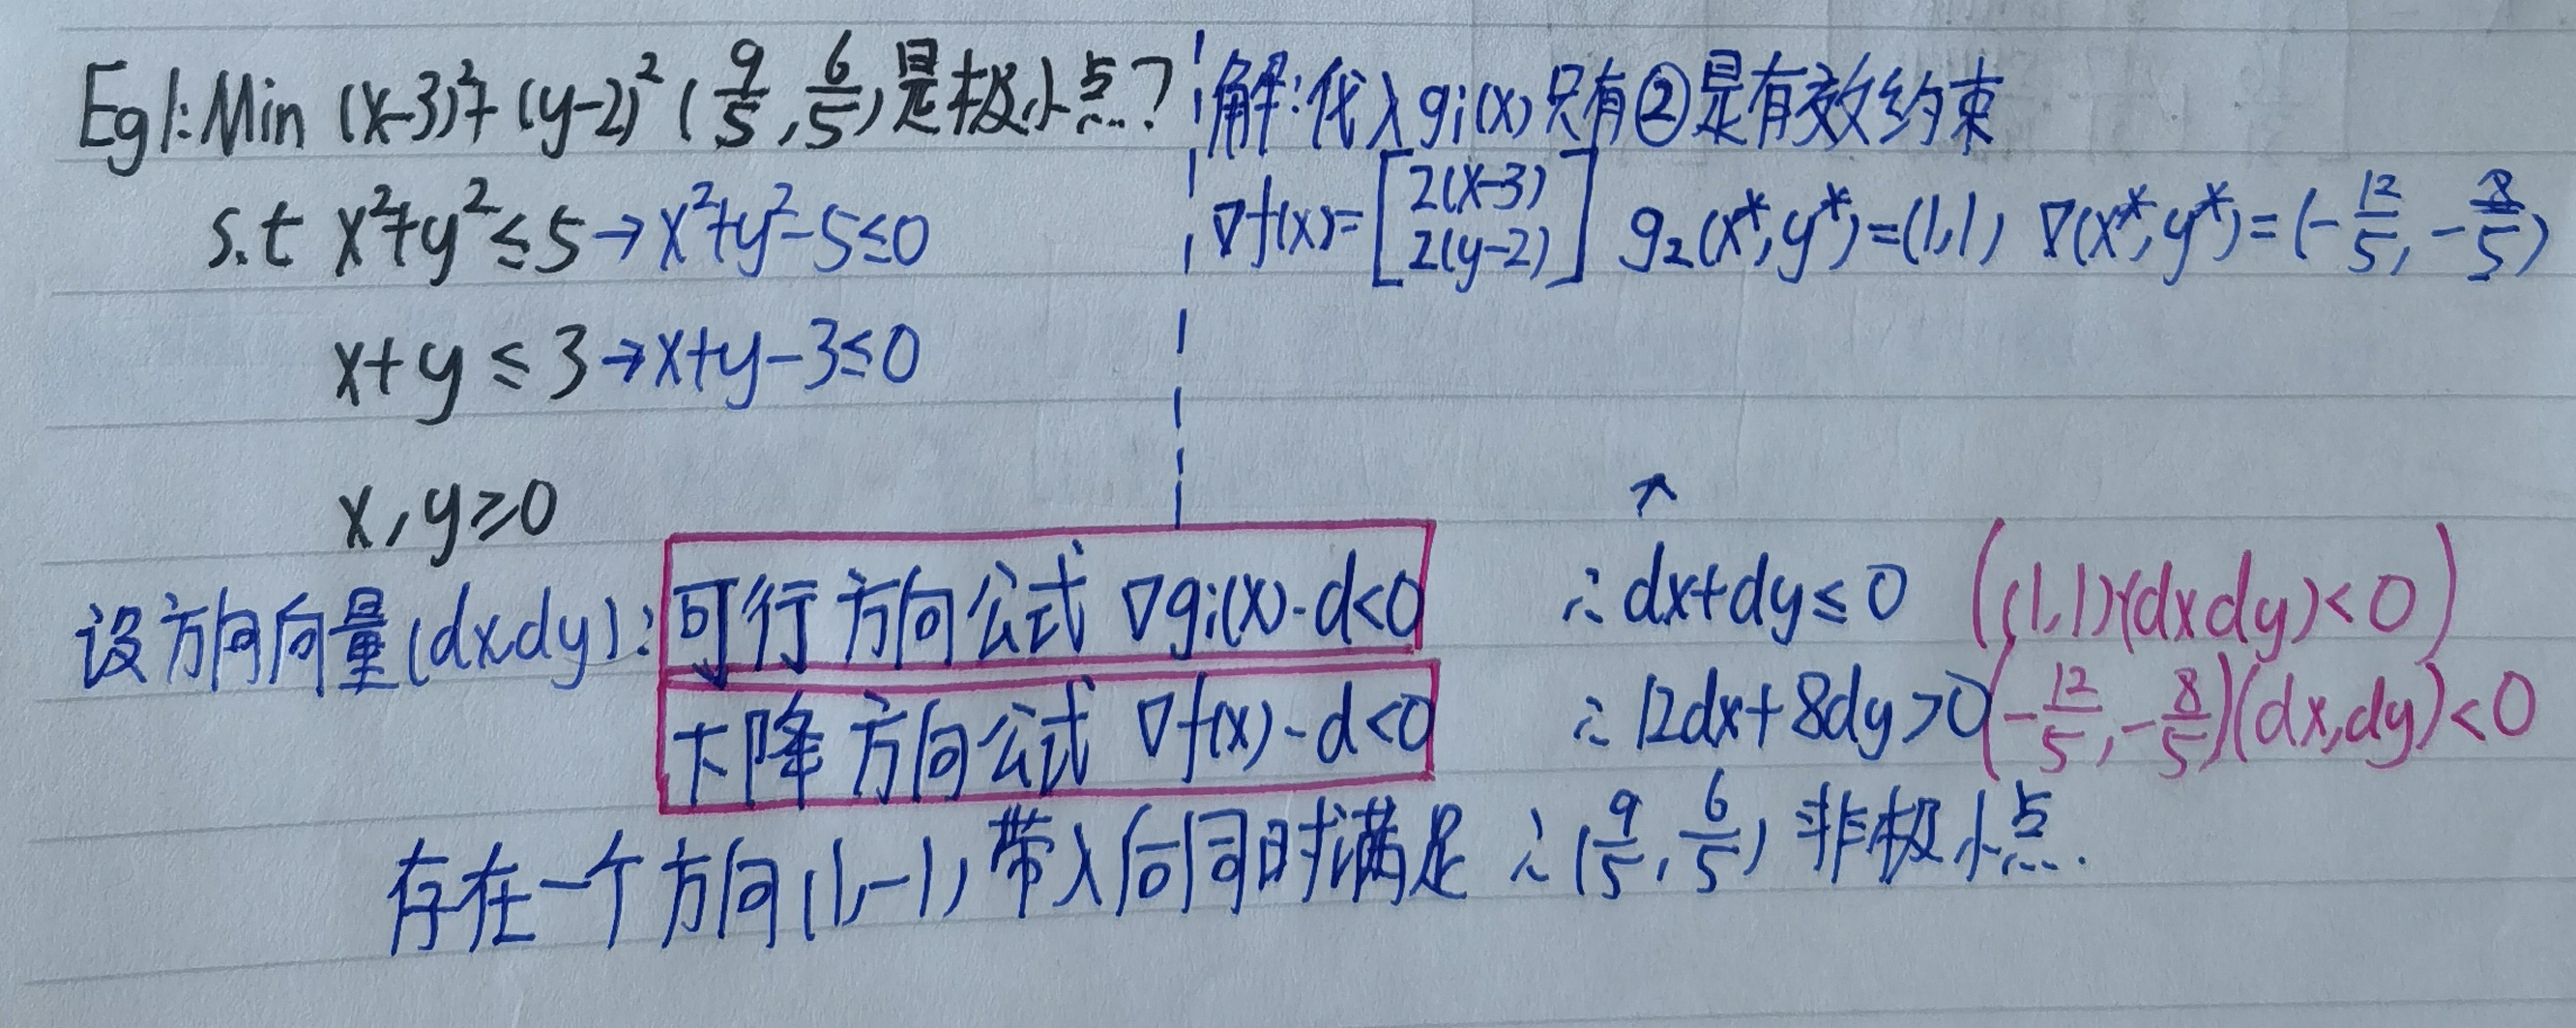 Eg1: Min (x-3)²+(y-2)² (9/5, 6/5)是极小点?
s.t x²+y²≤5→x²+y²-5≤0
x+y≤3→x+y-3≤0
x,y≥0
解:代入gi(x)只有②是有效约束
∇f(x)=[2(x-3) 2(y-2)] g₂(x*,y*)=(1,1) ∇(x*,y*)=(-12/5, -8/5)
设方向向量(dx,dy): 可行方向公式 ∇gi(x)·d<0 ∴dx+dy≤0 ((1,1)(dx dy)<0)
下降方向公式 ∇f(x)·d<0 ∴12dx+8dy>0 (-12/5, -8/5)(dx,dy)<0
存在一个方向(1,-1),带入后同时满足 ∴(9/5, 6/5)非极小点.